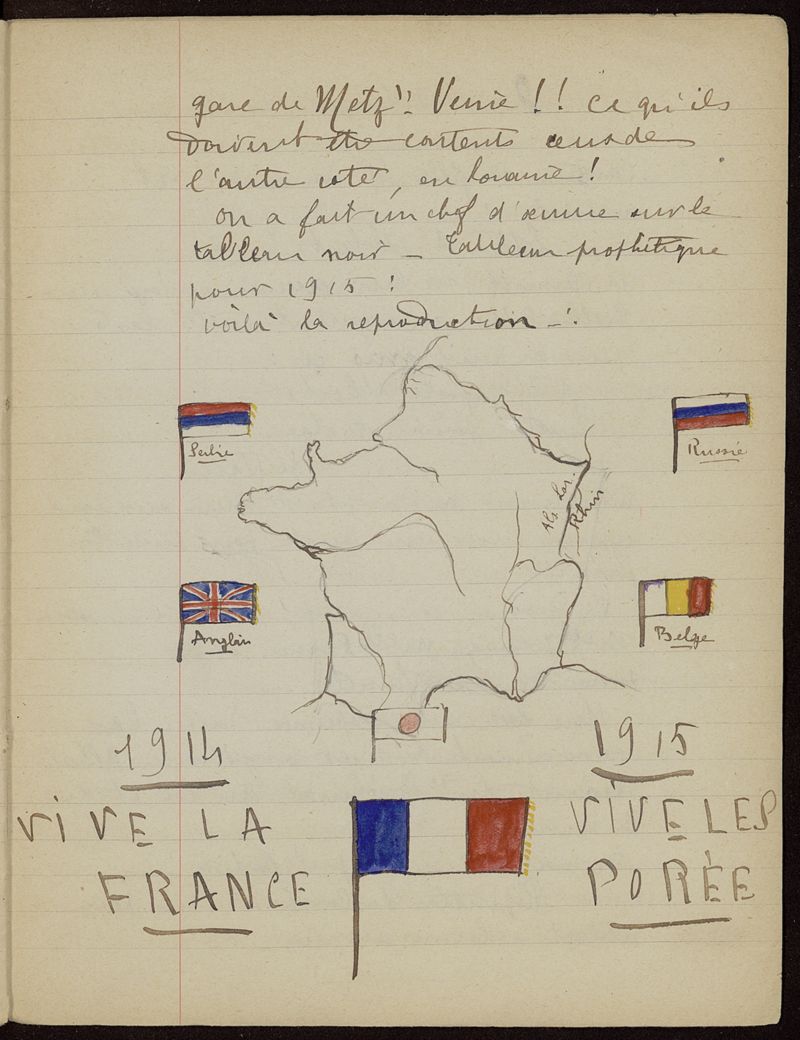 gare de Metz" Venie !! ce qu'ils
doivent être contents ceux de
l'autre coté, en Lorraine !
on a fait un chef d'œuvre sur le
tableau noir - Tableau prophétique
pour 1915 !
voilà la reproduction - :
Serbie
Russie
Als. Lor.
Rhin
Anglais
Belge
1914
1915
VIVE LA
FRANCE
VIVE LES
PORÉE